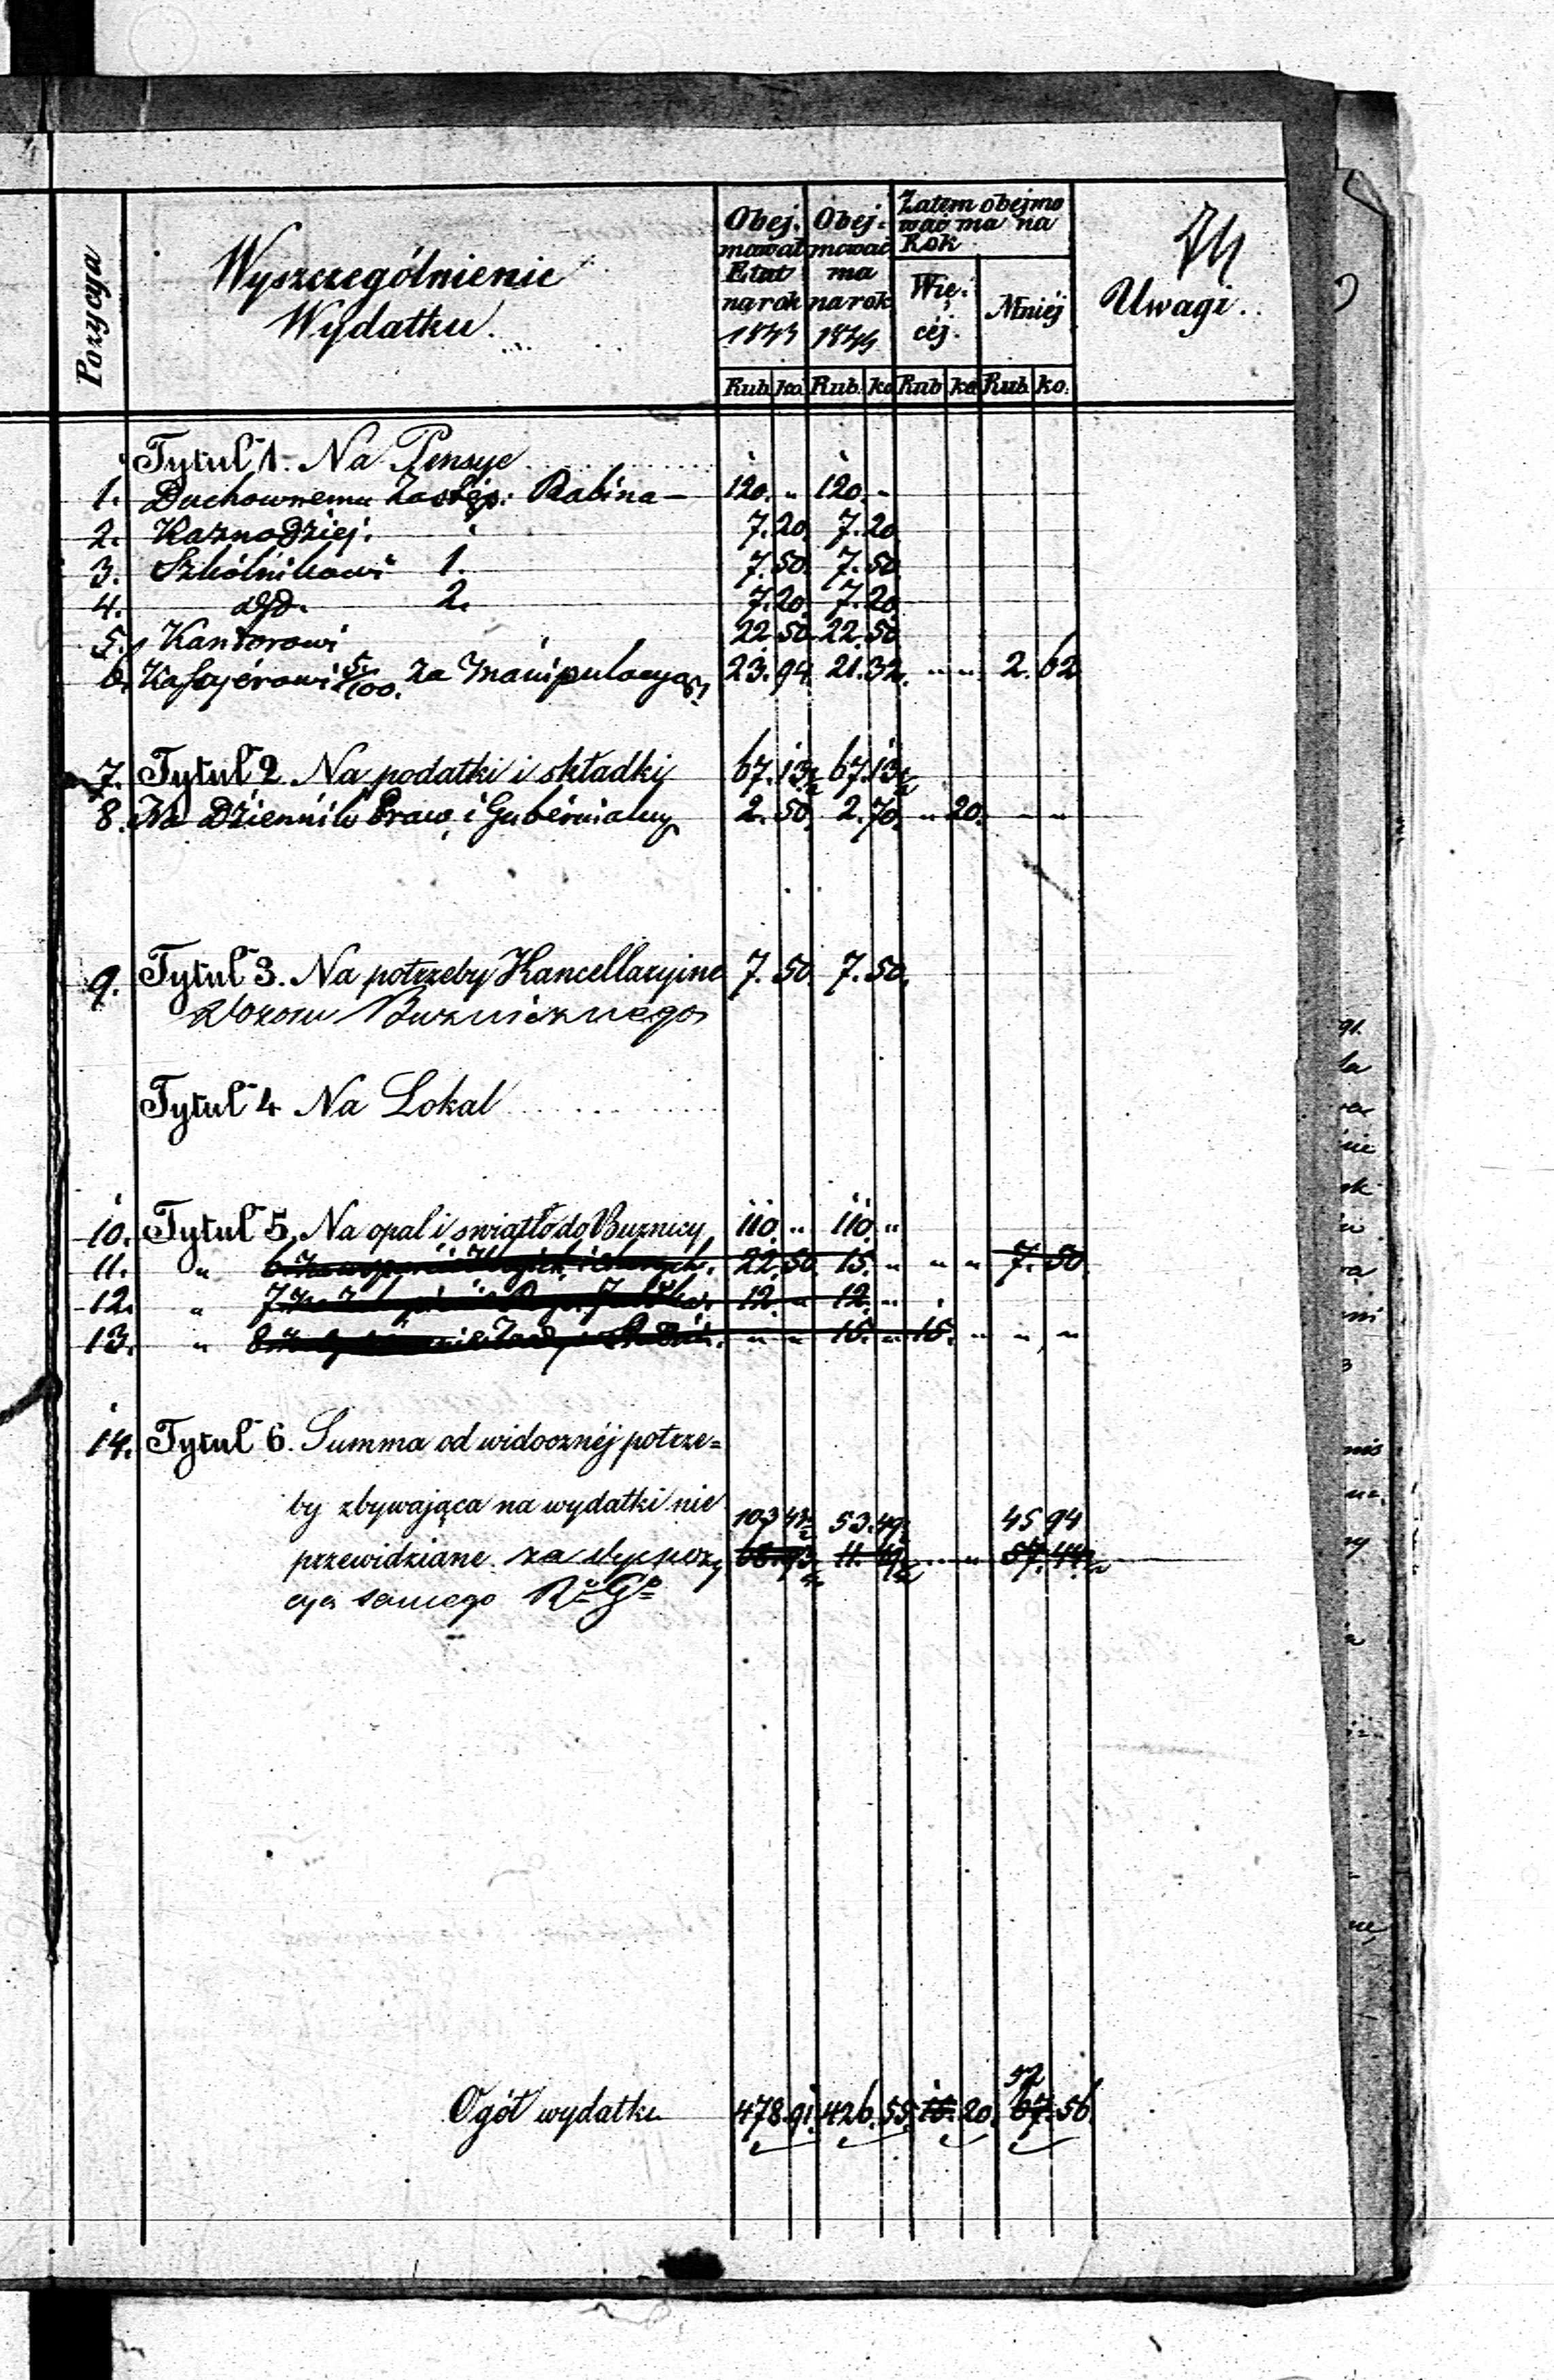 Pozycya
Wyszczególnienie Wydatku
Obejmował Etat na rok 1843
Obejmować ma na rok 1844
Zatem obejmować ma na Rok
Więcéj. Mniéj
Uwagi.
Rub. ko. Rub. ko Rub ko Rub. ko.
Tytuł 1. Na Pensye
1. Duchownemu Zastęp: Rabina — 120. " 120. "
2. Kaznodziej. 7. 20. 7. 20
3. Szkólnikowi 1. 7. 50. 7. 50
4. dtto. 2. 7. 20. 7. 20
5. Kantorowi 22. 50. 22. 50
6. Kassyerowi 5/100. za Manipulacyą 23. 94. 21. 32. " " 2. 62
7. Tytuł 2. Na podatki i składki 67. 13½ 67. 13½
8. Na Dziennik Praw i Gubernialny 2. 50. 2. 70. " 20. " "
9. Tytuł 3. Na potrzeby Kancellaryine 7. 50. 7. 50.
Dozoru Bużnicznego
Tytuł 4 Na Lokal
10. Tytuł 5. Na opał i swiatło do Bużnicy 110. " 110. "
11. " 6. 22. 50. 15. " " " 7. 50.
12. " 7. 12. " 12. "
13. " 8. " " 15. " 15. " " "
14. Tytuł 6. Summa od widocznéj potrze=
by zbywająca na wydatki nie
103 47½ 53. 49½ 45 94
przewidziane. za dyspozy
cyą samego Rz. Go
Ogół wydatku 478. 91. 426. 55. 15. 20. 67. 56.